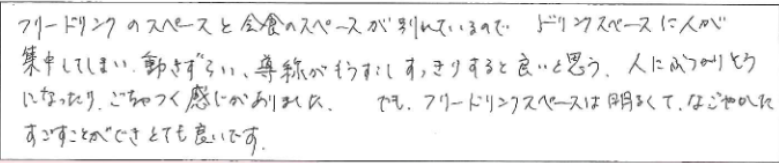 フリードリンクのスペースと会食のスペースが別れているので ドリンクスペースに人が
集中してしまい、動きずらい、導線がもうすこしすっきりすると良いと思う。人にぶつかりそう
になったり、ごちゃつく感じがありました。 でも、フリードリンクスペースは明るくて、なごやかに
すごすことができとても良いです。